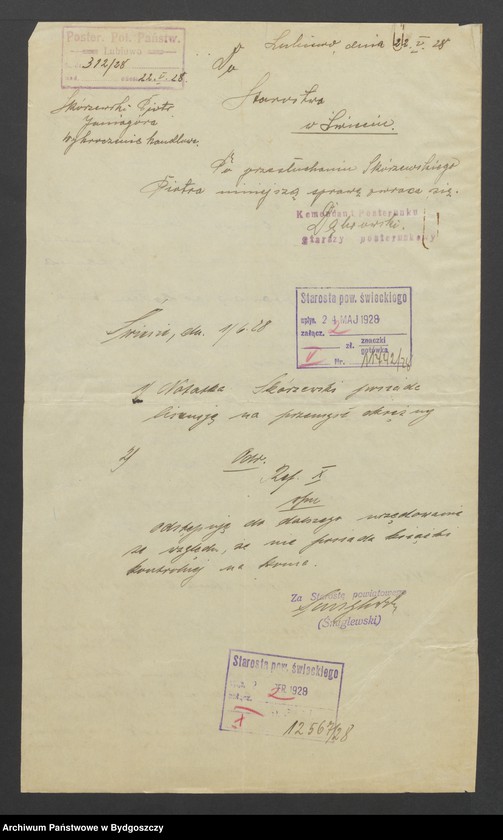 Poster. Pol. Państw.
Lubiewo
312/28
22.V.28
Lubiewo, dnia 22.V.28
Do
Starostwa
w Świeciu.
Skórzewski Piotr
Wykroczenie handlowe
Po przesłuchaniu Skórzewskiego
Piotra niniejszą sprawę zwraca się.
Komendant Posterunku
starszy posterunkowy
Starosta pow. świeckiego
wpłn. 24 MAJ 1928
załącz. 2
zł. znaczki
gotówka
V Nr. 11792/28
Świecie, dn. 1/6.28
1/ Notatka Skórzewski posiada
licencję na przemysł okrężny
2/
Ref. X
odstępuję do dalszego urzędowania
ze względu, że nie posiada książki
kontrolnej na konia.
Za Starostę powiatowego
(Śmiglewski)
Starosta pow. świeckiego
1928
2
X
12567/28
Archiwum Państwowe w Bydgoszczy